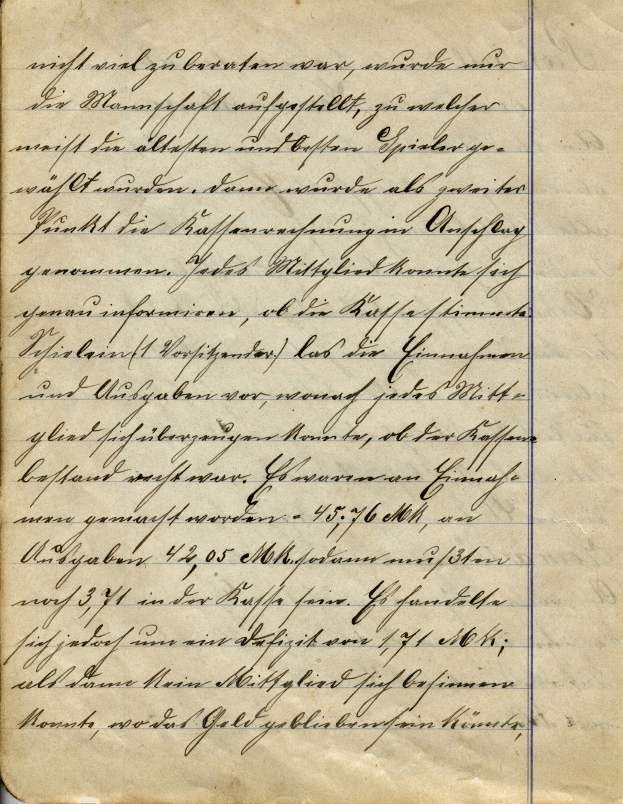 nicht viel zu beraten war, wurde nur
die Mannschaft aufgestellt, zu welcher
meist die ältesten und besten Spieler ge-
wählt wurden. Dann wurde als zweiter
Punkt die Kassenrechnung in Anschlag
genommen. Jedes Mittglied konnte sich
genau informiren, ob die Kasse stimmte.
Schielein (1 Vorsitzender) las die Einnahmen
und Ausgaben vor, wonach jedes Mitt-
glied sich überzeugen konnte, ob der Kassen-
bestand recht war. Es waren an Einnah-
men gemacht worden - 45,76 Mk, an
Ausgaben 42,05 Mk. sodann mußten
noch 3,71 in der Kasse sein. Es handelte
sich jedoch um ein Defizit von 1,71 Mk;
als dann kein Mittglied sich besinnen
konnte, wo das Geld geblieben sein könnte,